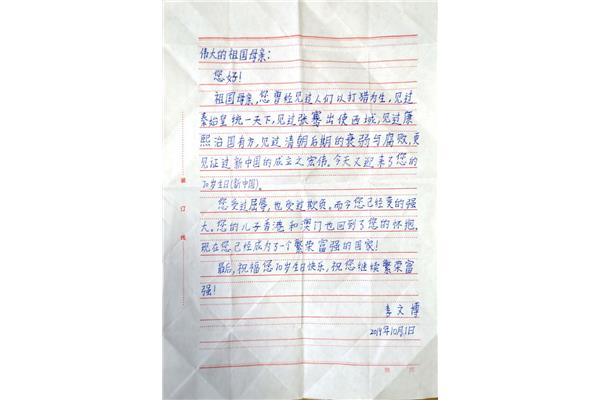 伟大的祖国母亲：
您好！
祖国母亲，您曾经见过人们以打猎为生，见过
秦始皇统一天下，见过张骞出使西域，见过康
熙治国有方，见过清朝后期的衰弱与腐败，更
见证过新中国的成立之宏伟。今天又迎来了您的
70岁生日(新中国)。
您受过屈辱，也受过欺负。而今您已经变的强
大。您的儿子香港和澳门也回到了您的怀抱。
现在您已经成为了一个繁荣富强的国家！
最后，祝福您70岁生日快乐，祝您继续繁荣富
强！
李文博
2019年10月1日
装
订
线